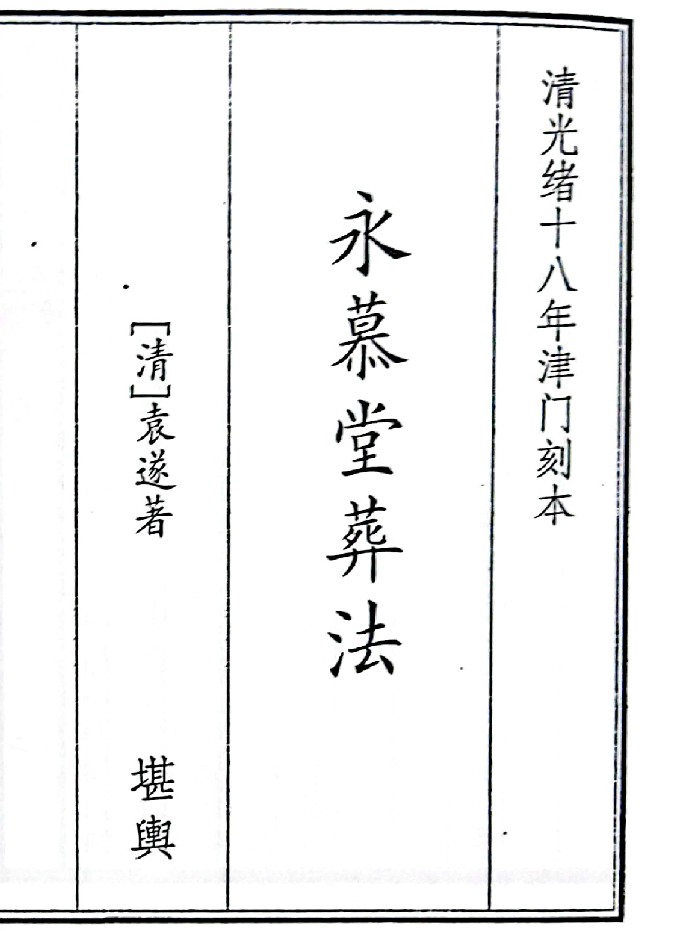 清光绪十八年津门刻本
永慕堂葬法
[清]袁遂著
堪舆